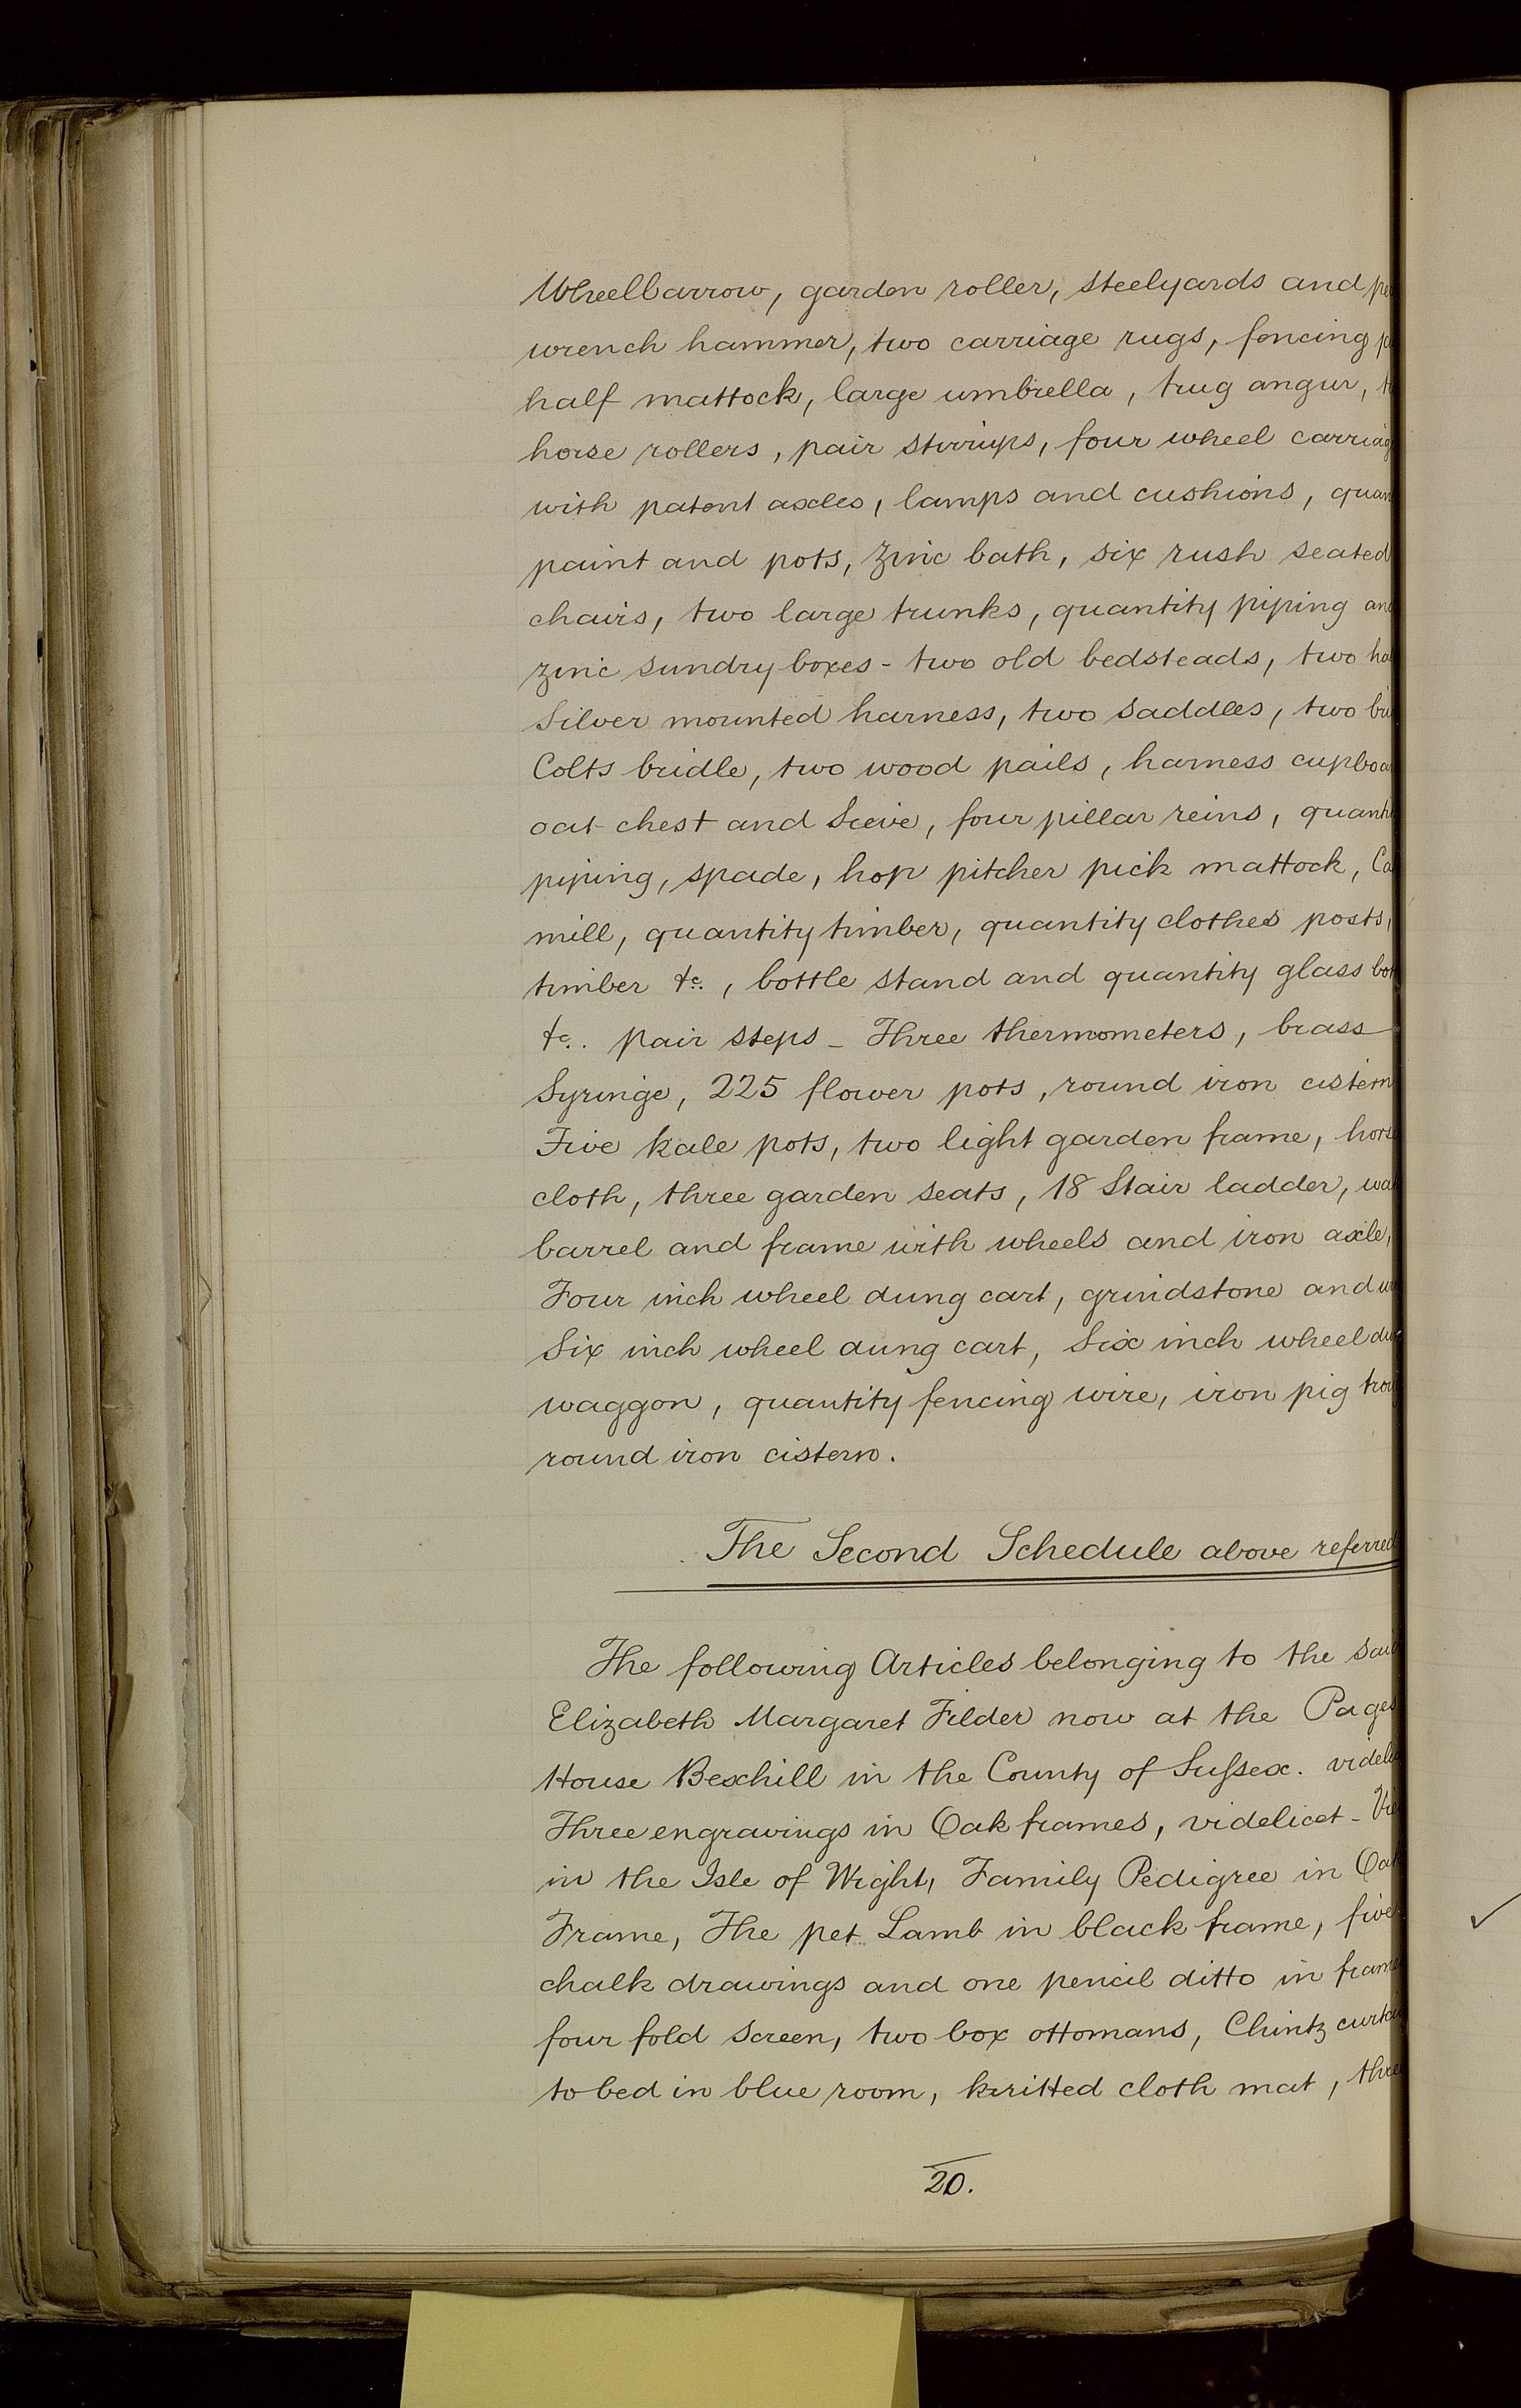 Wheelbarrow, garden roller, steelyards and
wrench hammer, two carriage rugs, fencing
half mattock, large umbrella, trug angur,
horse rollers, pair stirrups, four wheel carriag
with patent axles, lamps and cushions, quan
paint and pots, zinc bath, six rush seated
chairs, two large trunks, quantity piping an
zinc sundry boxes - two old bedsteads, two
Silver mounted harness, two saddles, two
Colts bridle, two wood pails, harness cupboa
oat chest and Sieve, four pillar reins, quanti
piping, spade, hop pitcher pick mattock,
mill, quantity timber, quantity clothes posts,
timber &c., bottle stand and quantity glass bot
&c.. pair steps - Three thermometers, brass
Syringe, 225 flower pots, round iron cistern
Five kale pots, two light garden frame, horse
cloth, three garden seats, 18 Stair ladder, wat
barrel and frame with wheels and iron axle,
Four inch wheel dung cart, grindstone and
Six inch wheel dung cart, Six inch wheel
waggon, quantity fencing wire, iron pig trou
round iron cistern.
The Second Schedule above referred
The following Articles belonging to the said
Elizabeth Margaret Filder now at the Pages
House Bexhill in the County of Sussex. videli
Three engravings in Oak frames, videlicet - Vie
in the Isle of Wight, Family Pedigree in Oak
Frame, The pet Lamb in black frame, five
chalk drawings and one pencil ditto in frame
four fold screen, two box ottomans, Chintz curtai
to bed in blue room, knitted cloth mat, three
20.